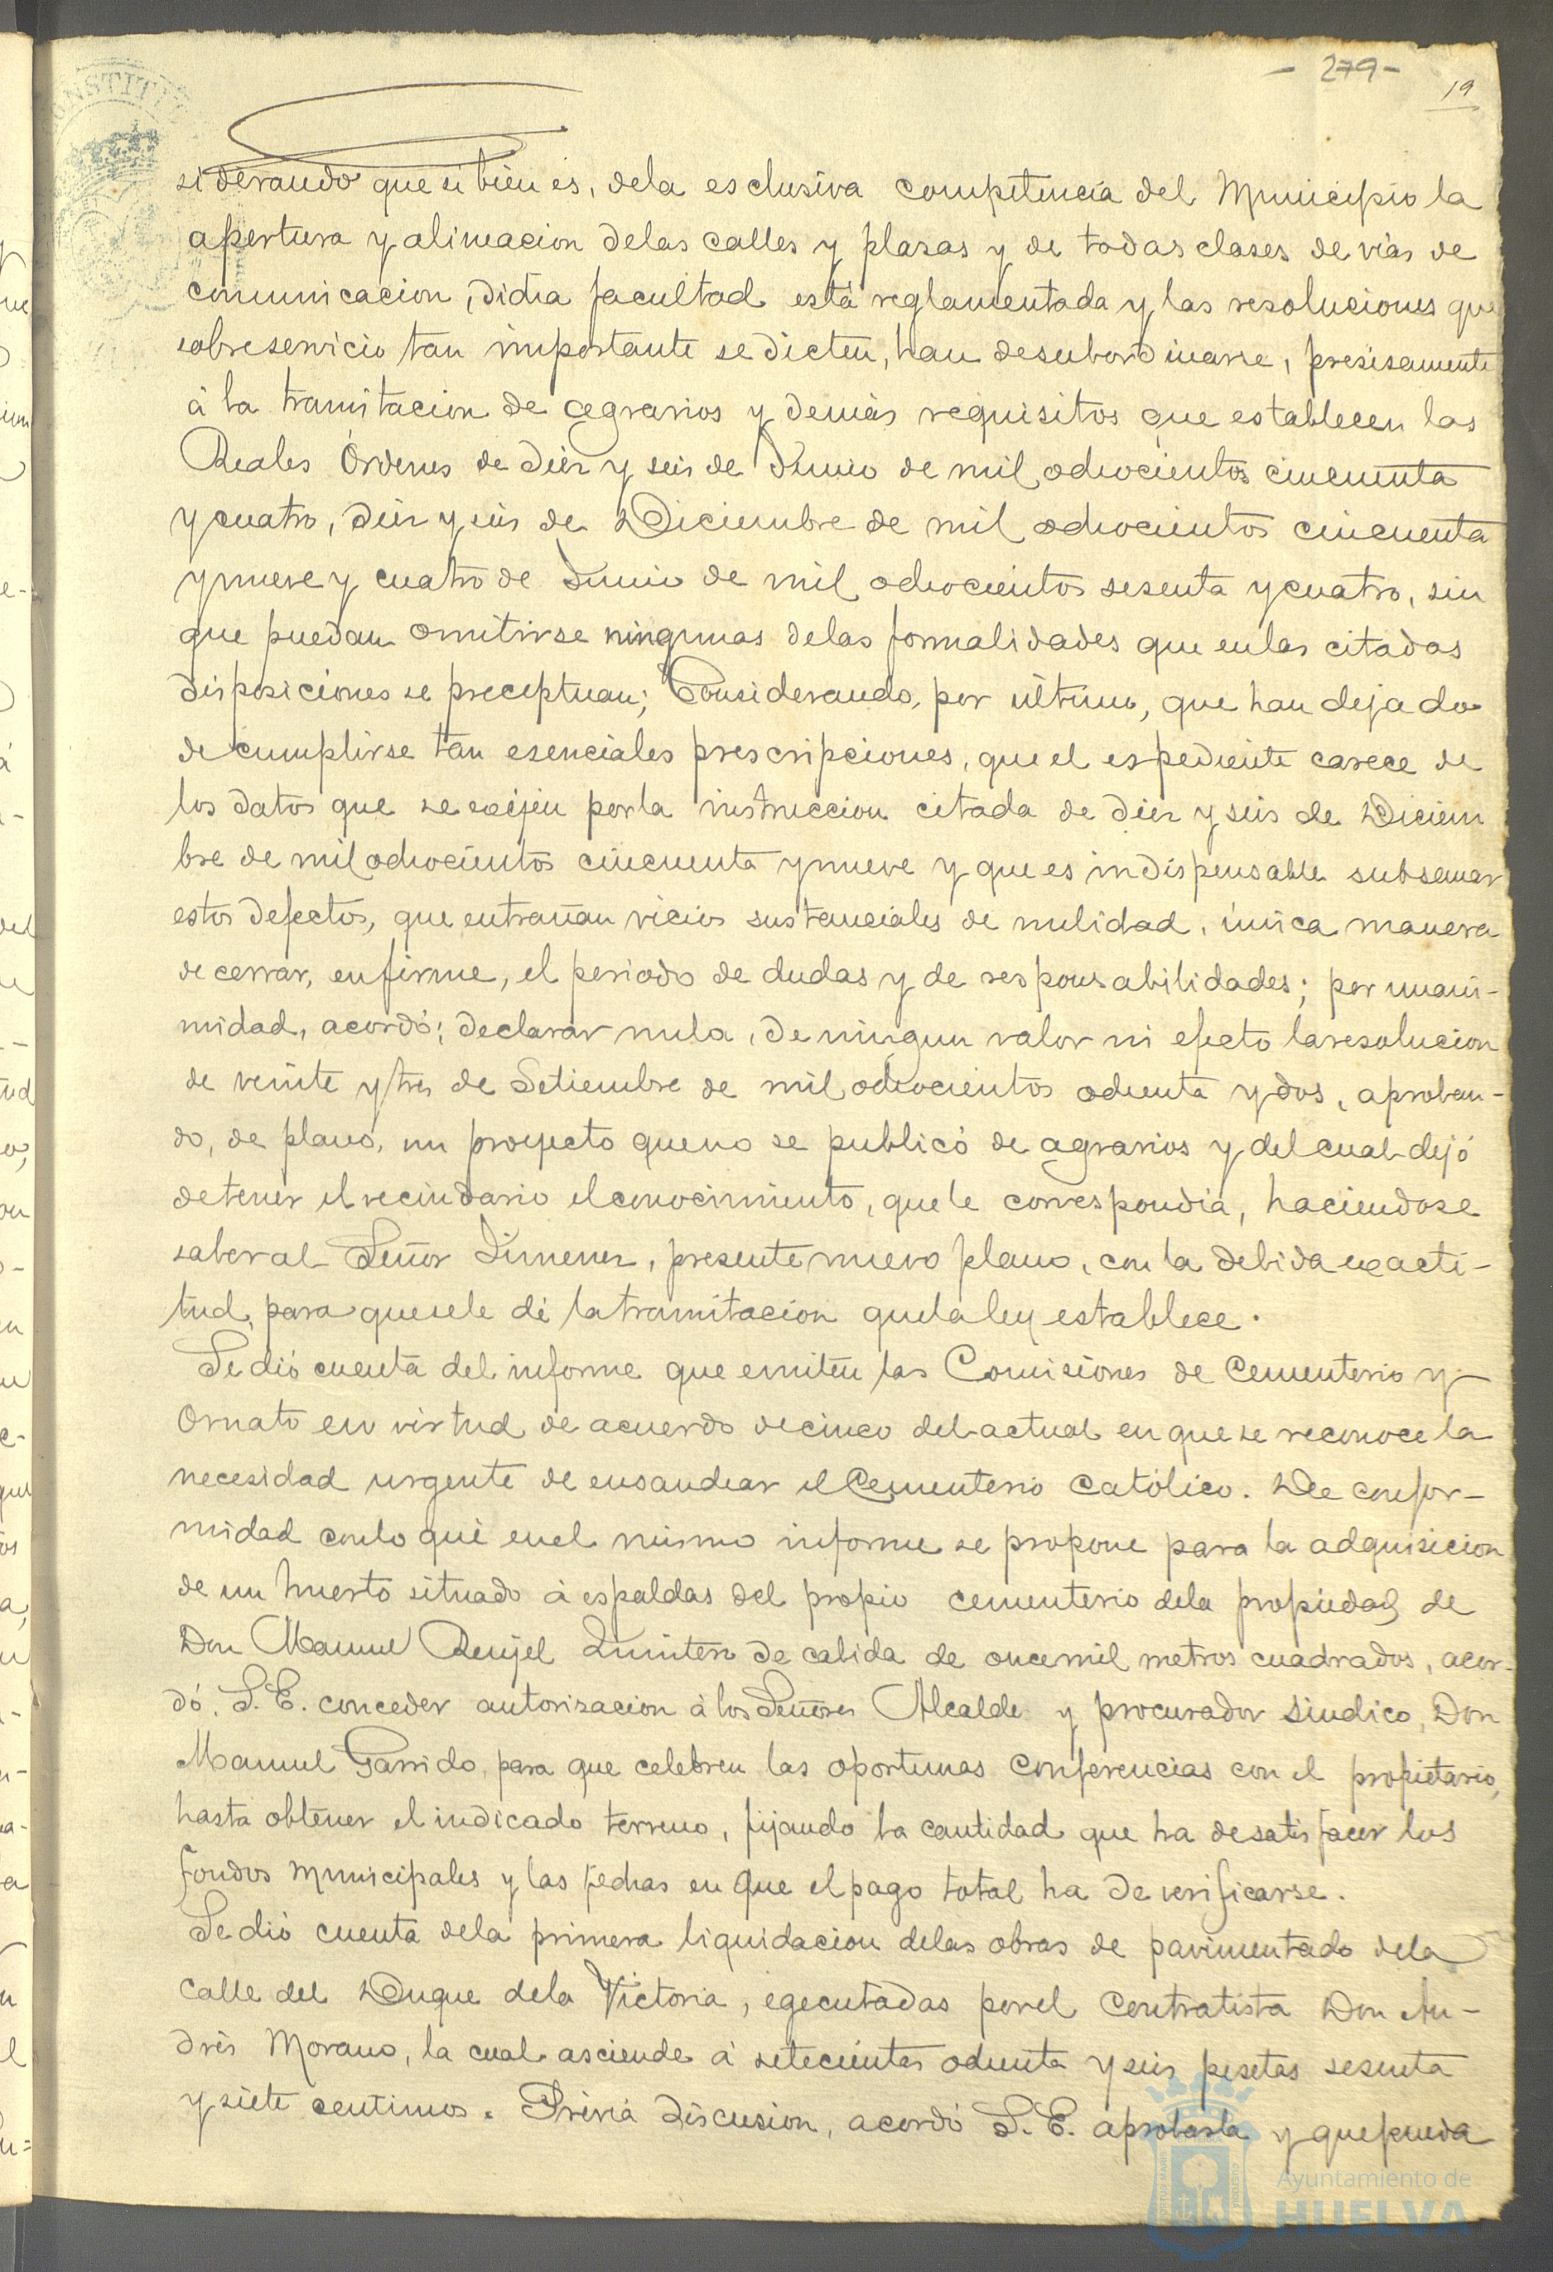 - 279 -
19
CONSTITU
siderando que si bien es, dela esclusiva competencia del Municipio la
apertura y alineacion delas calles y plasas y de todas clases de vias de
comunicacion, dicha facultad está reglamentada y las resoluciones que
sobreservicio tan importante se dicten, han desubordinarse, presisamente
á la tramitacion de agrarios y demás requisitos que establecen las
Reales Órdenes de diez y seis de Junio de mil ochocientos cincuenta
y cuatro, diez y seis de Diciembre de mil ochocientos cincuenta
y nueve y cuatro de Junio de mil ochocientos sesenta y cuatro, sin
que puedan omitirse ningunas delas formalidades que enlas citadas
disposiciones se preceptuan; Considerando, por último, que han dejado
de cumplirse tan esenciales prescripciones, que el espediente carece de
los datos que se exijen porla instruccion citada de diez y seis de Diciem
bre de mil ochocientos cincuenta y nueve y que es indispensable subsanar
estos defectos, que entrañan vicios sustanciales de nulidad, única manera
de cerrar, enfirme, el periodo de dudas y de responsabilidades; por unani-
midad, acordó; declarar nula, de ningun valor ni efecto laresolucion
de veinte y tres de Setiembre de mil ochocientos ochenta y dos, aproban-
do, de plano, un proyecto queno se publicó de agrarios y del cual dejó
detener el vecindario elconocimiento, quele correspondia, haciendose
saber al Señor Jimenez, presente nuevo plano, con la debida exacti-
tud, para quesele dé la tramitacion quela ley establece.
Se dió cuenta del informe que emiten las Comisiones de Cementerio y
Ornato en virtud de acuerdo decinco del actual en que se reconoce la
necesidad urgente de ensanchar el Cementerio Católico. De confor-
midad conlo que enel mismo informe se propone para la adquisicion
de un huerto situado á espaldas del propio cementerio dela propiedad de
Don Manuel Renjel Quintero de cabida de oncemil metros cuadrados, acor-
dó. S. E. conceder autorisacion á los Señores Alcalde y procurador Sindico, Don
Manuel Garrido, para que celebren las oportunas conferencias con el propietario,
hasta obtener el indicado terreno, fijando la cantidad que ha desatisfacer los
fondos municipales y las fechas en que el pago total ha de verificarse.
Se dió cuenta dela primera liquidacion delas obras de pavimentado dela
calle del Duque dela Victoria, egecutadas porel contratista Don An-
drés Morano, la cual asciende á setecientas ochenta y seis pesetas sesenta
y siete centimos. Prévia discusion, acordó S. E. aprobarla y quepueda
Ayuntamiento de
HUELVA